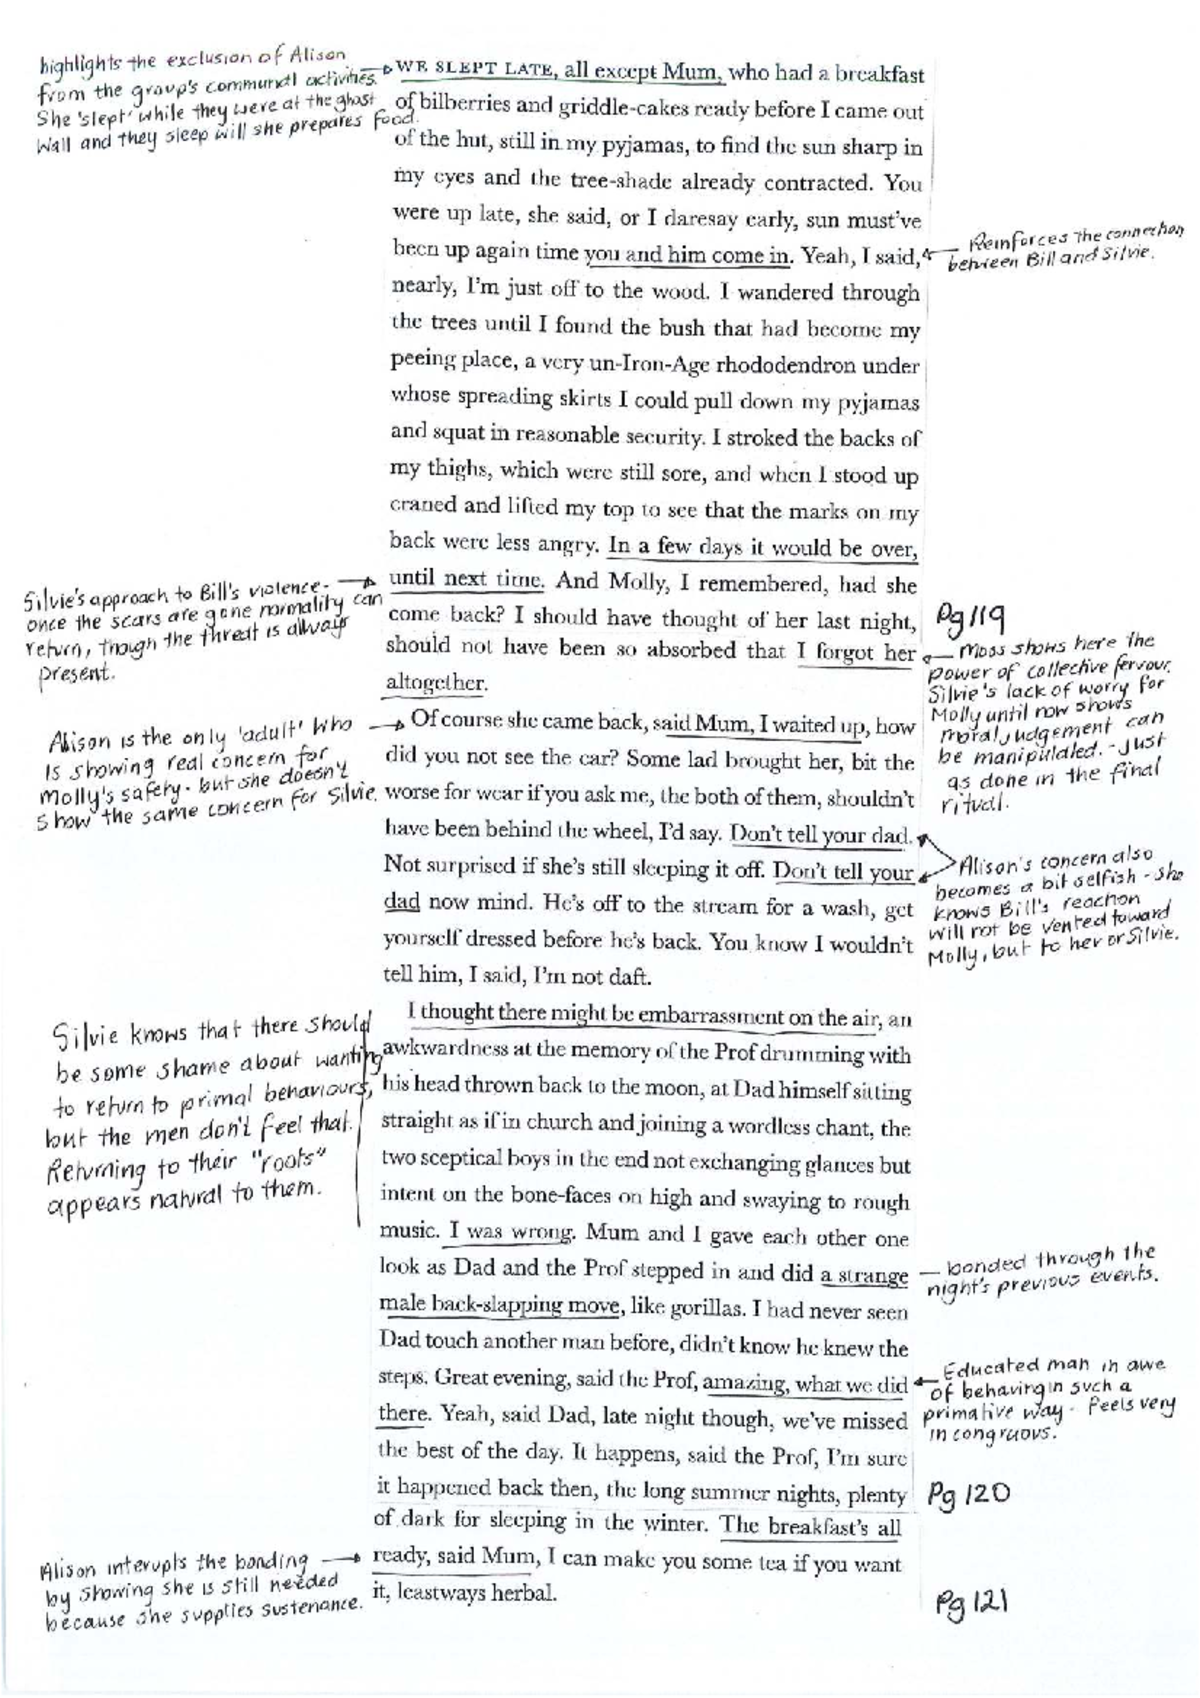 highlights the exclusion of Alison
from the group's communal activities.
She 'slept' while they were at the ghost
Wall and they sleep will she prepares food.
WE SLEPT LATE, all except Mum, who had a breakfast
of bilberries and griddle-cakes ready before I came out
of the hut, still in my pyjamas, to find the sun sharp in
my eyes and the tree-shade already contracted. You
were up late, she said, or I daresay early, sun must've
been up again time you and him come in. Yeah, I said,
Reinforces the connection
between Bill and Silvie.
nearly, I'm just off to the wood. I wandered through
the trees until I found the bush that had become my
peeing place, a very un-Iron-Age rhododendron under
whose spreading skirts I could pull down my pyjamas
and squat in reasonable security. I stroked the backs of
my thighs, which were still sore, and when I stood up
craned and lifted my top to see that the marks on my
back were less angry. In a few days it would be over,
until next time. And Molly, I remembered, had she
come back? I should have thought of her last night,
should not have been so absorbed that I forgot her
altogether.
Silvie's approach to Bill's violence-
once the scars are gone normality can
return, though the threat is always
present.
Pg 119
Moss shows here the
power of collective fervour.
Silvie's lack of worry for
Molly until now shows
moral judgement can
be manipulated. - just
as done in the final
ritual.
Alison is the only 'adult' who
is showing real concern for
Molly's safety - but she doesn't
show the same concern for Silvie.
Of course she came back, said Mum, I waited up, how
did you not see the car? Some lad brought her, bit the
worse for wear if you ask me, the both of them, shouldn't
have been behind the wheel, I'd say. Don't tell your dad.
Not surprised if she's still sleeping it off. Don't tell your
dad now mind. He's off to the stream for a wash, get
yourself dressed before he's back. You know I wouldn't
tell him, I said, I'm not daft.
Alison's concern also
becomes a bit selfish - she
knows Bill's reaction
will not be vented toward
Molly, but to her or Silvie.
Silvie knows that there should
be some shame about wanting
to return to primal behaviours,
but the men don't feel that.
Returning to their "roots"
appears natural to them.
I thought there might be embarrassment on the air, an
awkwardness at the memory of the Prof drumming with
his head thrown back to the moon, at Dad himself sitting
straight as if in church and joining a wordless chant, the
two sceptical boys in the end not exchanging glances but
intent on the bone-faces on high and swaying to rough
music. I was wrong. Mum and I gave each other one
look as Dad and the Prof stepped in and did a strange
male back-slapping move, like gorillas. I had never seen
Dad touch another man before, didn't know he knew the
steps. Great evening, said the Prof, amazing, what we did
there. Yeah, said Dad, late night though, we've missed
the best of the day. It happens, said the Prof, I'm sure
it happened back then, the long summer nights, plenty
of dark for sleeping in the winter. The breakfast's all
ready, said Mum, I can make you some tea if you want
it, leastways herbal.
bonded through the
night's previous events.
Educated man in awe
of behaving in such a
primative way - feels very
incongruous.
Pg 120
Alison interupts the bonding
by showing she is still needed
because she supplies sustenance.
Pg 121